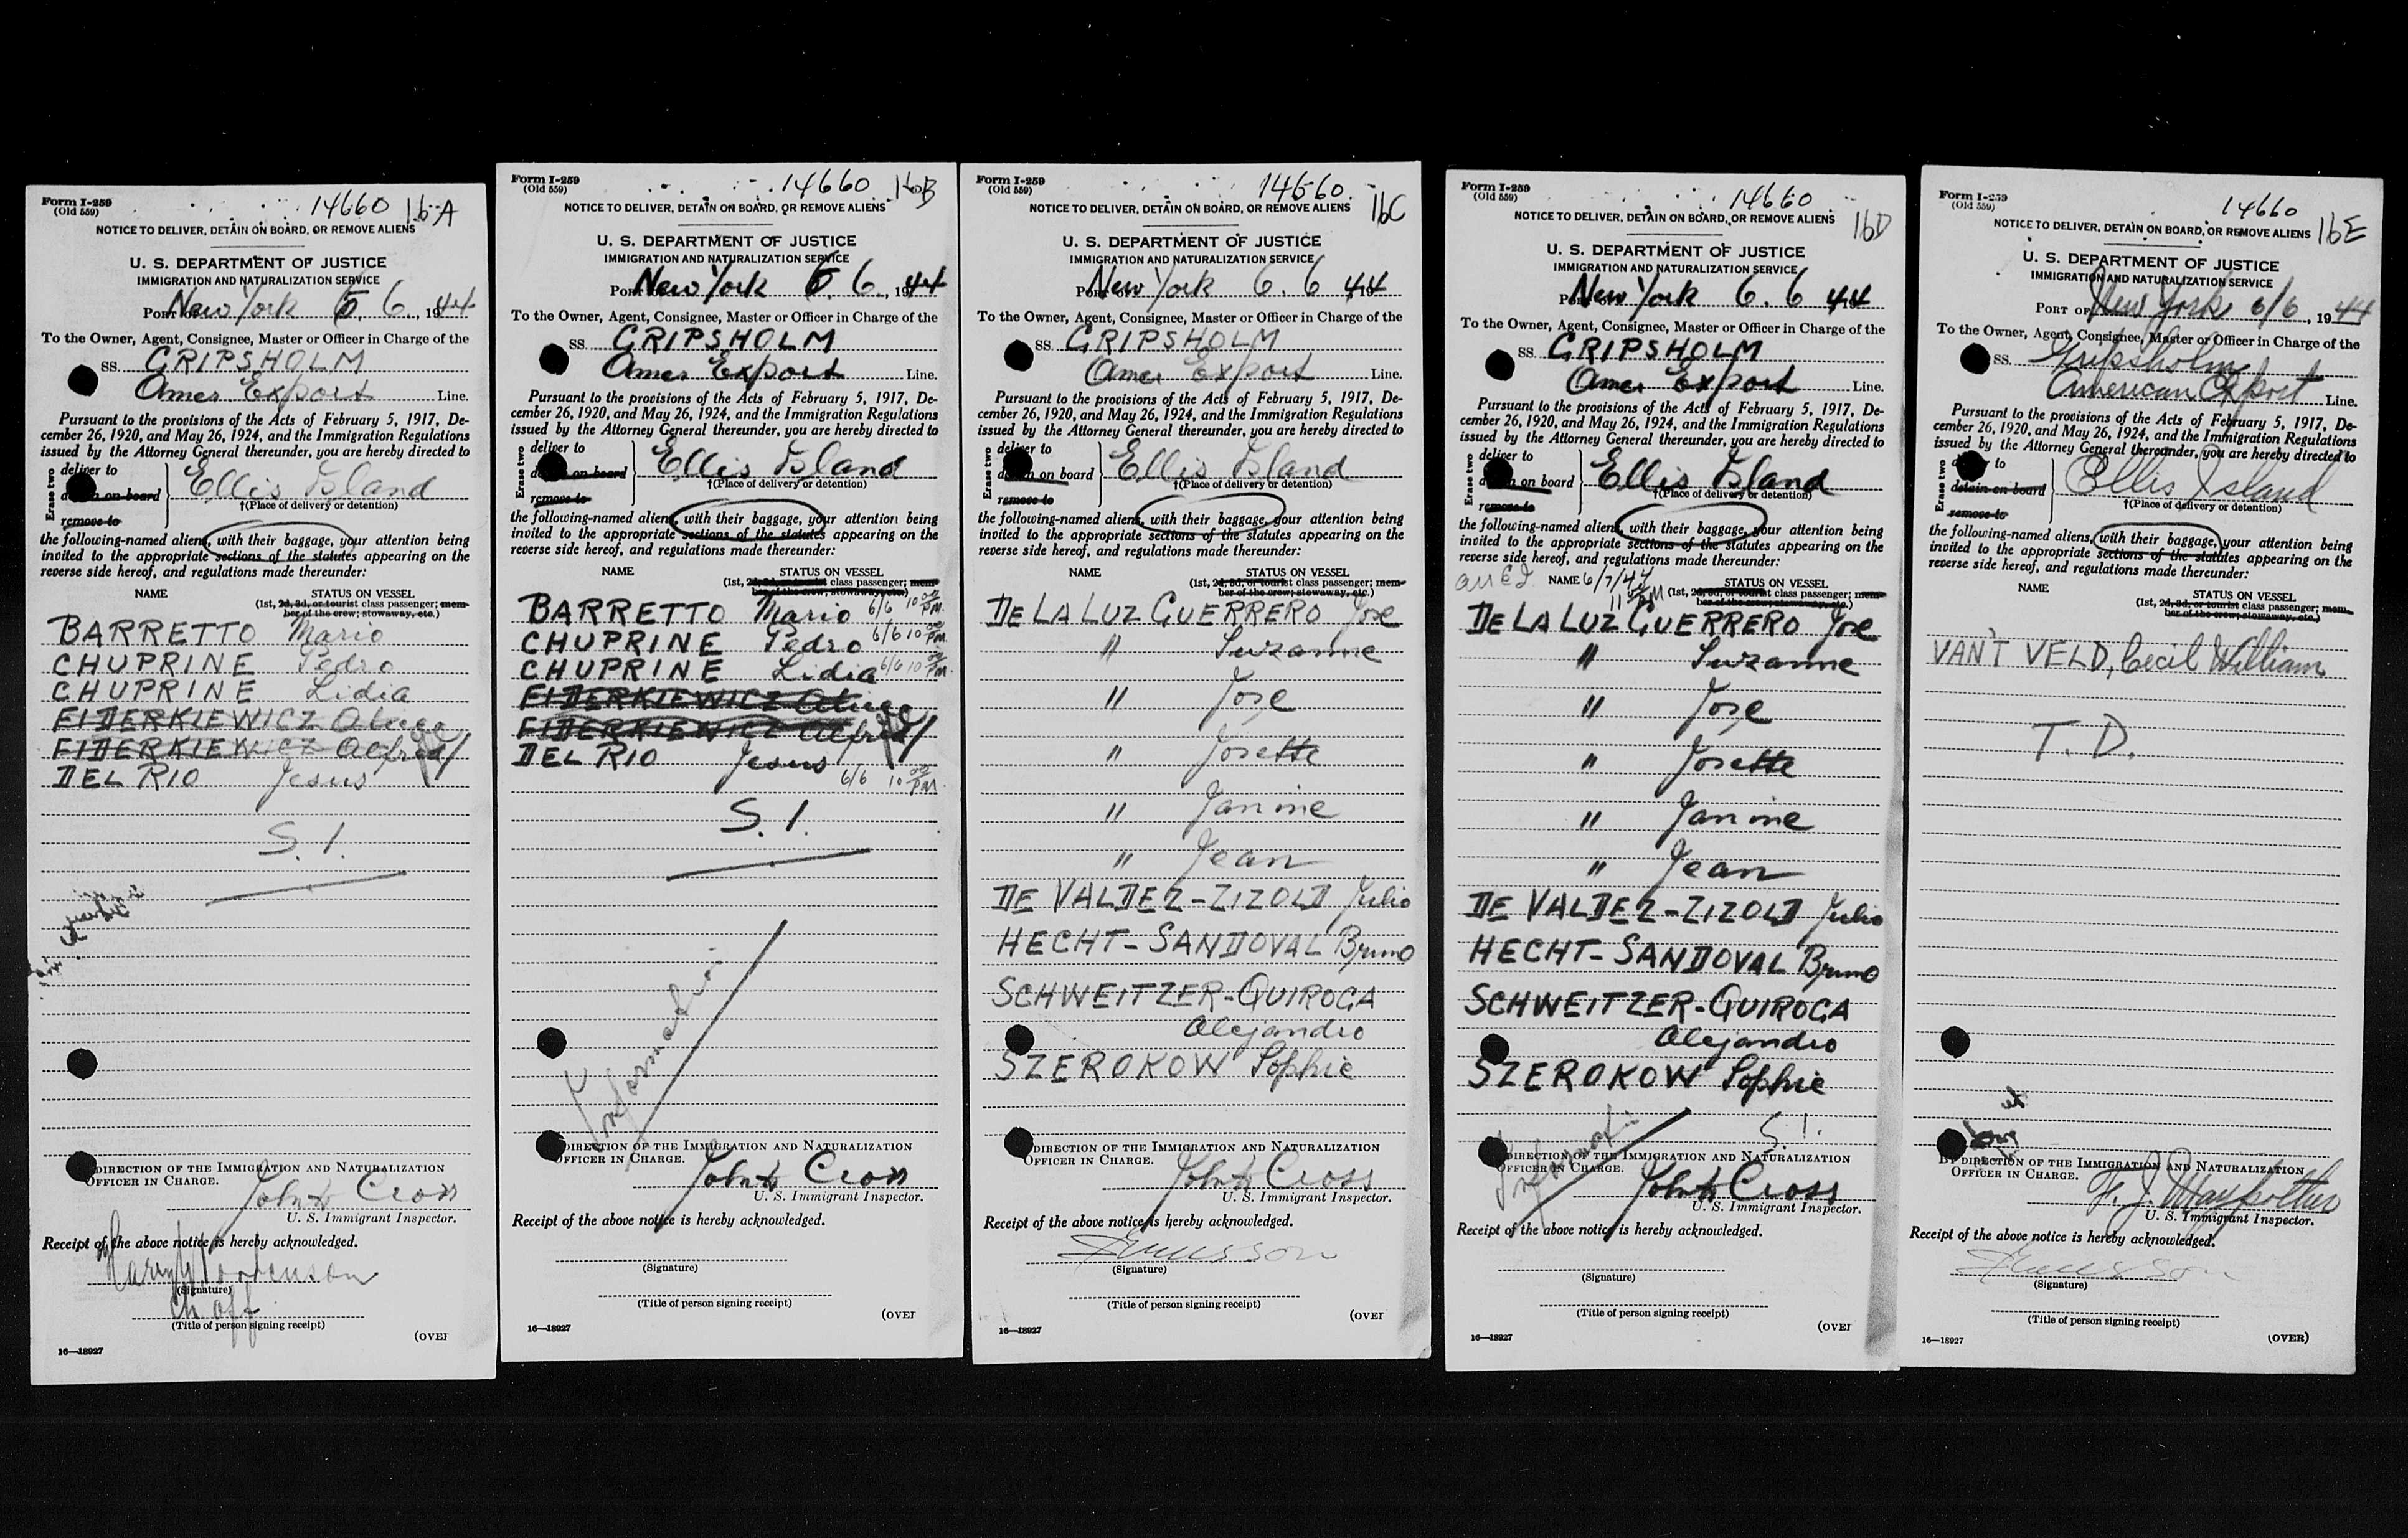 Form I-259
(Old 559)
14660 16A
NOTICE TO DELIVER, DETAIN ON BOARD, OR REMOVE ALIENS
U. S. DEPARTMENT OF JUSTICE
IMMIGRATION AND NATURALIZATION SERVICE
Port New York 6. 6., 1944
To the Owner, Agent, Consignee, Master or Officer in Charge of the
SS. GRIPSHOLM
Amer Export Line.
Pursuant to the provisions of the Acts of February 5, 1917, De-
cember 26, 1920, and May 26, 1924, and the Immigration Regulations
issued by the Attorney General thereunder, you are hereby directed to
Erase two
deliver to
on board
remove to
Ellis Island
†(Place of delivery or detention)
the following-named aliens, with their baggage, your attention being
invited to the appropriate sections of the statutes appearing on the
reverse side hereof, and regulations made thereunder:
NAME STATUS ON VESSEL
(1st, 2d, 3d, or tourist class passenger; mem-
ber of the crew; stowaway, etc.)
BARRETTO Mario
CHUPRINE Pedro
CHUPRINE Lidia
FIDERKIEWICZ
FIDERKIEWICZ Alfred
DEL RIO Jesus
S. I.
DIRECTION OF THE IMMIGRATION AND NATURALIZATION
OFFICER IN CHARGE.
John Cross
U. S. Immigrant Inspector.
Receipt of the above notice is hereby acknowledged.
(Signature)
Ch off
(Title of person signing receipt)
(OVER
16—18927
Form I-259
(Old 559)
14660 16B
NOTICE TO DELIVER, DETAIN ON BOARD, OR REMOVE ALIENS
U. S. DEPARTMENT OF JUSTICE
IMMIGRATION AND NATURALIZATION SERVICE
Port New York 6. 6., 1944
To the Owner, Agent, Consignee, Master or Officer in Charge of the
SS. GRIPSHOLM
Amer Export Line.
Pursuant to the provisions of the Acts of February 5, 1917, De-
cember 26, 1920, and May 26, 1924, and the Immigration Regulations
issued by the Attorney General thereunder, you are hereby directed to
Erase two
deliver to
on board
remove to
Ellis Island
†(Place of delivery or detention)
the following-named aliens, with their baggage, your attention being
invited to the appropriate sections of the statutes appearing on the
reverse side hereof, and regulations made thereunder:
NAME STATUS ON VESSEL
(1st, 2d, 3d, or tourist class passenger; mem-
ber of the crew; stowaway, etc.)
BARRETTO Mario 6/6 10 00 PM
CHUPRINE Pedro 6/6 10 00 PM
CHUPRINE Lidia 6/6 10 00 PM
FIDERKIEWICZ
FIDERKIEWICZ Alfred
DEL RIO Jesus 6/6 10 00 PM
S. I.
DIRECTION OF THE IMMIGRATION AND NATURALIZATION
OFFICER IN CHARGE.
John Cross
U. S. Immigrant Inspector.
Receipt of the above notice is hereby acknowledged.
(Signature)
(Title of person signing receipt)
(OVER
16—18927
Form I-259
(Old 559)
14660 16C
NOTICE TO DELIVER, DETAIN ON BOARD, OR REMOVE ALIENS
U. S. DEPARTMENT OF JUSTICE
IMMIGRATION AND NATURALIZATION SERVICE
Port New York 6. 6 44
To the Owner, Agent, Consignee, Master or Officer in Charge of the
SS. GRIPSHOLM
Amer Export Line.
Pursuant to the provisions of the Acts of February 5, 1917, De-
cember 26, 1920, and May 26, 1924, and the Immigration Regulations
issued by the Attorney General thereunder, you are hereby directed to
Erase two
deliver to
on board
remove to
Ellis Island
†(Place of delivery or detention)
the following-named aliens, with their baggage, your attention being
invited to the appropriate sections of the statutes appearing on the
reverse side hereof, and regulations made thereunder:
NAME STATUS ON VESSEL
(1st, 2d, 3d, or tourist class passenger; mem-
ber of the crew; stowaway, etc.)
DE LA LUZ GUERRERO Jose
" Suzanne
" Jose
" Josette
" Janine
" Jean
DE VALDEZ-ZIZOLD Julio
HECHT-SANDOVAL Bruno
SCHWEITZER-QUIROGA
Alejandro
SZEROKOW Sophie
DIRECTION OF THE IMMIGRATION AND NATURALIZATION
OFFICER IN CHARGE.
John Cross
U. S. Immigrant Inspector.
Receipt of the above notice is hereby acknowledged.
(Signature)
(Title of person signing receipt)
(OVER
16—18927
Form I-259
(Old 559)
14660 16D
NOTICE TO DELIVER, DETAIN ON BOARD, OR REMOVE ALIENS
U. S. DEPARTMENT OF JUSTICE
IMMIGRATION AND NATURALIZATION SERVICE
New York 6. 6 44
To the Owner, Agent, Consignee, Master or Officer in Charge of the
SS. GRIPSHOLM
Amer Export Line.
Pursuant to the provisions of the Acts of February 5, 1917, De-
cember 26, 1920, and May 26, 1924, and the Immigration Regulations
issued by the Attorney General thereunder, you are hereby directed to
Erase two
deliver to
on board
remove to
Ellis Island
†(Place of delivery or detention)
the following-named aliens, with their baggage, your attention being
invited to the appropriate sections of the statutes appearing on the
reverse side hereof, and regulations made thereunder:
NAME 6/7/44 STATUS ON VESSEL
(1st, 2d, 3d, or tourist class passenger; mem-
ber of the crew; stowaway, etc.)
DE LA LUZ GUERRERO Jose
" Suzanne
" Jose
" Josette
" Janine
" Jean
DE VALDEZ-ZIZOLD Julio
HECHT-SANDOVAL Bruno
SCHWEITZER-QUIROGA
Alejandro
SZEROKOW Sophie
S. I.
DIRECTION OF THE IMMIGRATION AND NATURALIZATION
OFFICER IN CHARGE.
John Cross
U. S. Immigrant Inspector.
Receipt of the above notice is hereby acknowledged.
(Signature)
(Title of person signing receipt)
(OVER
16—18927
Form I-259
(Old 559)
14660 16E
NOTICE TO DELIVER, DETAIN ON BOARD, OR REMOVE ALIENS
U. S. DEPARTMENT OF JUSTICE
IMMIGRATION AND NATURALIZATION SERVICE
PORT OF New York 6/6, 1944
To the Owner, Agent, Consignee, Master or Officer in Charge of the
SS. Gripsholm
American Export Line.
Pursuant to the provisions of the Acts of February 5, 1917, De-
cember 26, 1920, and May 26, 1924, and the Immigration Regulations
issued by the Attorney General thereunder, you are hereby directed to
Erase two
to
detain on board
remove to
Ellis Island
†(Place of delivery or detention)
the following-named aliens, with their baggage, your attention being
invited to the appropriate sections of the statutes appearing on the
reverse side hereof, and regulations made thereunder:
NAME STATUS ON VESSEL
(1st, 2d, 3d, or tourist class passenger; mem-
ber of the crew; stowaway, etc.)
VAN'T VELD, Cecil William
T. D.
BY DIRECTION OF THE IMMIGRATION AND NATURALIZATION
OFFICER IN CHARGE.
U. S. Immigrant Inspector.
Receipt of the above notice is hereby acknowledged.
(Signature)
(Title of person signing receipt)
(OVER)
16—18927